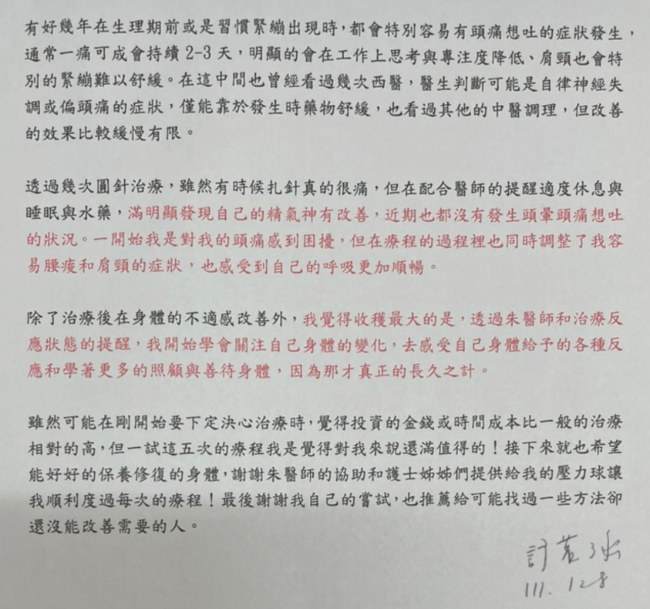 有好幾年在生理期前或是習慣緊繃出現時，都會特別容易有頭痛想吐的症狀發生，
通常一痛可成會持續2-3天，明顯的會在工作上思考與專注度降低、肩頸也會特
別的緊繃難以舒緩。在這中間也曾經看過幾次西醫，醫生判斷可能是自律神經失
調或偏頭痛的症狀，僅能靠於發生時藥物舒緩，也看過其他的中醫調理，但改善
的效果比較緩慢有限。
透過幾次圓針治療，雖然有時候扎針真的很痛，但在配合醫師的提醒適度休息與
睡眠與水藥，滿明顯發現自己的精氣神有改善，近期也都沒有發生頭暈頭痛想吐
的狀況。一開始我是對我的頭痛感到困擾，但在療程的過程裡也同時調整了我容
易腰痠和肩頸的症狀，也感受到自己的呼吸更加順暢。
除了治療後在身體的不適感改善外，我覺得收穫最大的是，透過朱醫師和治療反
應狀態的提醒，我開始學會關注自己身體的變化，去感受自己身體給予的各種反
應和學著更多的照顧與善待身體，因為那才真正的長久之計。
雖然可能在剛開始要下定決心治療時，覺得投資的金錢或時間成本比一般的治療
相對的高，但一試這五次的療程我是覺得對我來說還滿值得的！接下來就也希望
能好好的保養修復的身體，謝謝朱醫師的協助和護士姊姊們提供給我的壓力球讓
我順利度過每次的療程！最後謝謝我自己的嘗試，也推薦給可能找過一些方法卻
還沒能改善需要的人。
111.12.8